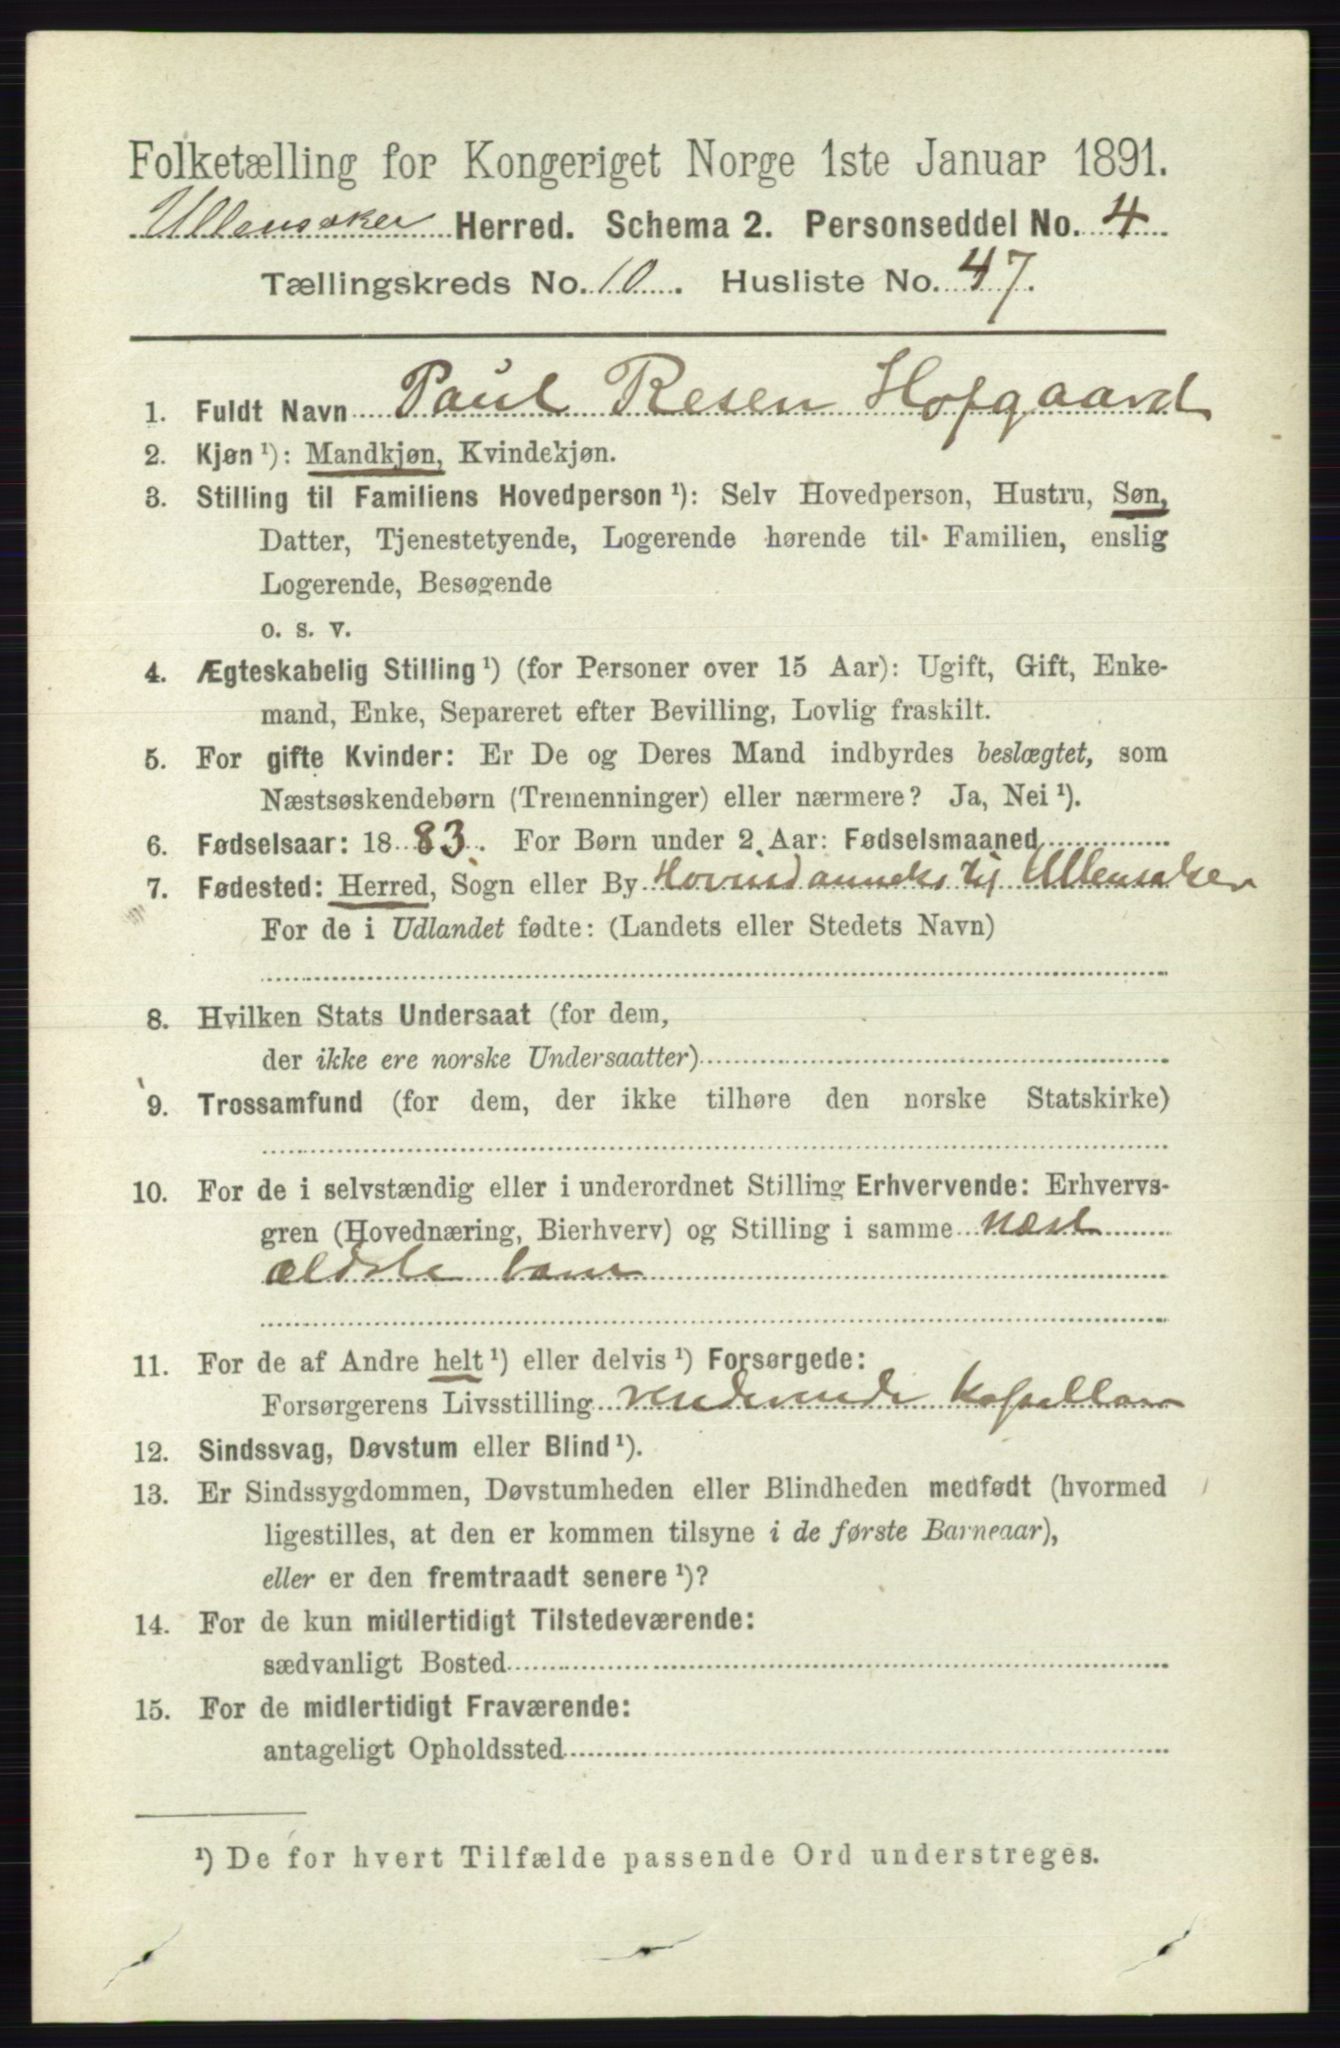 Folketælling for Kongeriget Norge 1ste Januar 1891.
Ullensaker Herred. Schema 2. Personseddel No. 4
Tællingskreds No. 10. Husliste No. 47.
1. Fuldt Navn Paul Resen Hofgaard
2. Kjøn ¹): Mandkjøn, Kvindekjøn.
3. Stilling til Familiens Hovedperson ¹): Selv Hovedperson, Hustru, Søn,
Datter, Tjenestetyende, Logerende hørende til Familien, enslig
Logerende, Besøgende
o. s. v.
4. Ægteskabelig Stilling ¹) (for Personer over 15 Aar): Ugift, Gift, Enke-
mand, Enke, Separeret efter Bevilling, Lovlig fraskilt.
5. For gifte Kvinder: Er De og Deres Mand indbyrdes beslægtet, som
Næstsøskendebørn (Tremenninger) eller nærmere? Ja, Nei ¹).
6. Fødselsaar: 1883. For Børn under 2 Aar: Fødselsmaaned
7. Fødested: Herred, Sogn eller By Ullensaker
For de i Udlandet fødte: (Landets eller Stedets Navn)
8. Hvilken Stats Undersaat (for dem,
der ikke ere norske Undersaatter)
9. Trossamfund (for dem, der ikke tilhøre den norske Statskirke)
10. For de i selvstændig eller i underordnet Stilling Erhvervende: Erhvervs-
gren (Hovednæring, Bierhverv) og Stilling i samme næst
ældste
11. For de af Andre helt ¹) eller delvis ¹) Forsørgede:
Forsørgerens Livsstilling Kapellan
12. Sindssvag, Døvstum eller Blind ¹).
13. Er Sindssygdommen, Døvstumheden eller Blindheden medfødt (hvormed
ligestilles, at den er kommen tilsyne i de første Barneaar),
eller er den fremtraadt senere ¹)?
14. For de kun midlertidigt Tilstedeværende:
sædvanligt Bosted
15. For de midlertidigt Fraværende:
antageligt Opholdssted
¹) De for hvert Tilfælde passende Ord understreges.